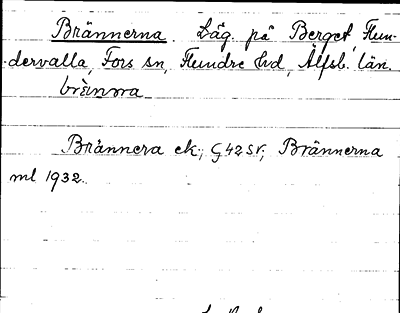 Brännerna. Läg. på Berget, Flun-
dervalla, Fors sn, Flundre hd, Älfsb. län.
brännra
Brännera ek., G42SV, Brännerna
ml 1932.